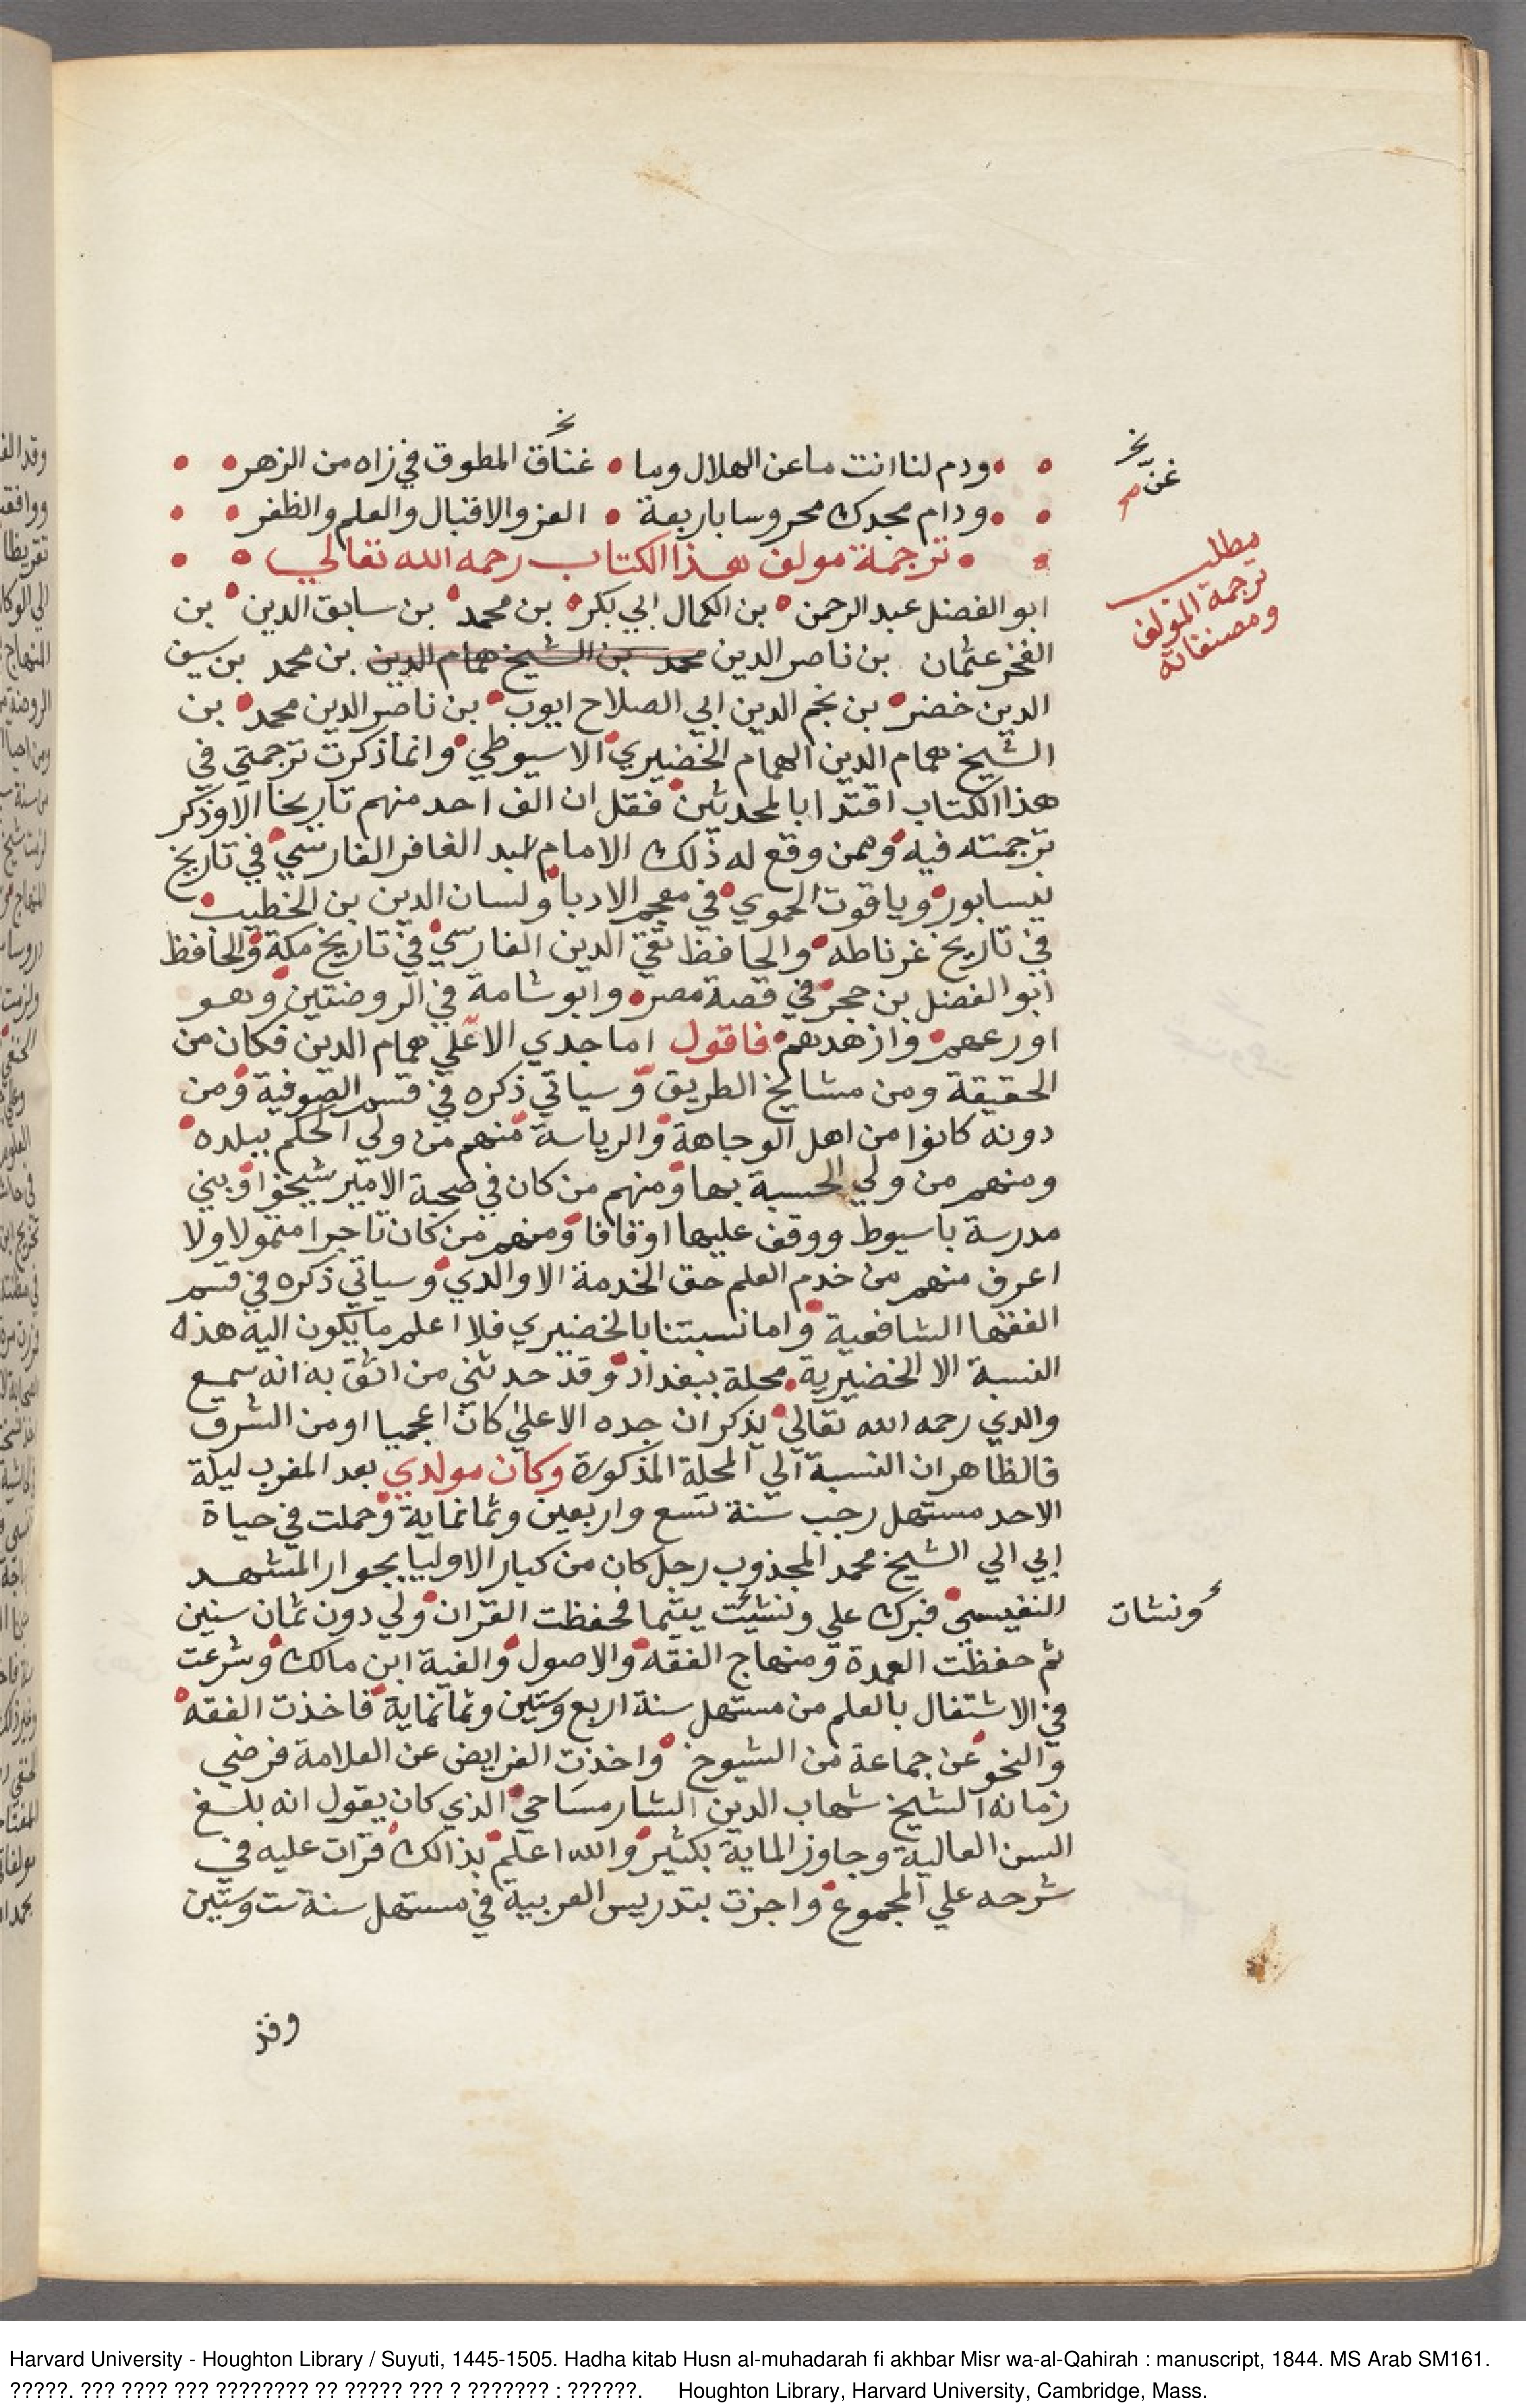 ودم لنا انت ما عن الهلال وما • غناق المطوق في زاه من الزهر
نخـ
ودام مجدك محروسا باربعة • العز والاقبال والعلم والظفر
ترجمة مولف هذا الكتاب رحمه الله تعالي
ابو الفضل عبد الرحمن بن الكمال ابي بكر بن محمد بن سابق الدين بن
الفخر عثمان بن ناصر الدين محمد بن الشيخ همام الدين بن محمد بن سيف
الدين خضر بن نجم الدين ابي الصلاح ايوب بن ناصر الدين محمد بن
الشيخ همام الدين الهمام الخضيري الاسيوطي وانما ذكرت ترجمتي في
هذا الكتاب اقتدا بالمحدثين فقل ان الف احد منهم تاريخا الا وذكر
ترجمته فيه وممن وقع له ذلك الامام عبد الغافر الفارسي في تاريخ
نيسابور وياقوت الحموي في معجم الادبا ولسان الدين بن الخطيب
في تاريخ غرناطه والحافظ تقي الدين الفارسي في تاريخ مكة والحافظ
ابو الفضل بن حجر في قصة مصر وابو شامة في الروضتين وهو
اورعهم وازهدهم فاقول اما جدي الاعلي همام الدين فكان من
الحقيقة ومن مشايخ الطريق وسياتي ذكره في قسم الصوفية ومن
دونه كانوا من اهل الوجاهة والرياسة منهم من ولي الحكم ببلده
ومنهم من ولي الحسبة بها ومنهم من كان في صحبة الامير شيخو او بني
مدرسة باسيوط ووقف عليها اوقافا ومنهم من كان تاجرا متمولا ولا
اعرف منهم من خدم العلم حق الخدمة الا والدي وسياتي ذكره في قسم
الفقها الشافعية واما نسبتنا بالخضيري فلا اعلم ما يكون اليه هذه
النسبة الا الخضيرية محلة ببغداد وقد حدثني من اثق به انه سمع
والدي رحمه الله تعالي يذكر ان جده الاعلي كان اعجميا او من الشرق
فالظاهر ان النسبة الي المحلة المذكورة وكان مولدي بعد المغرب ليلة
الاحد مستهل رجب سنة تسع واربعين وثمانماية وحملت في حياة
ابي الي الشيخ محمد المجذوب رجل كان من كبار الاوليا بجوار المشهد
النفيسي فبرك علي وننشئت يتيما فحفظت القران ولي دون ثمان سنين
ثم حفظت العمدة ومنهاج الفقه والاصول والفية ابن مالك وشرعت
في الاشتغال بالعلم من مستهل سنة اربع وستين وثمانماية فاخذت الفقه
والنحو عن جماعة من الشيوخ واخذت الفرايض عن العلامة فرضي
زمانه الشيخ شهاب الدين الشارمساحي الذي كان يقول انه بلغ
السن العالية وجاوز الماية بكثير والله اعلم بذالك قرات عليه في
شرحه علي المجموع واجزت بتدريس العربية في مستهل سنة ست وستين
وقد
نخـ
غنّ
مطلب
ترجمة المؤلف
ومصنفاته
ونشات
Harvard University - Houghton Library / Suyuti, 1445-1505. Hadha kitab Husn al-muhadarah fi akhbar Misr wa-al-Qahirah : manuscript, 1844. MS Arab SM161.
?????. ??? ???? ??? ???????? ?? ????? ??? ? ??????? : ??????. Houghton Library, Harvard University, Cambridge, Mass.